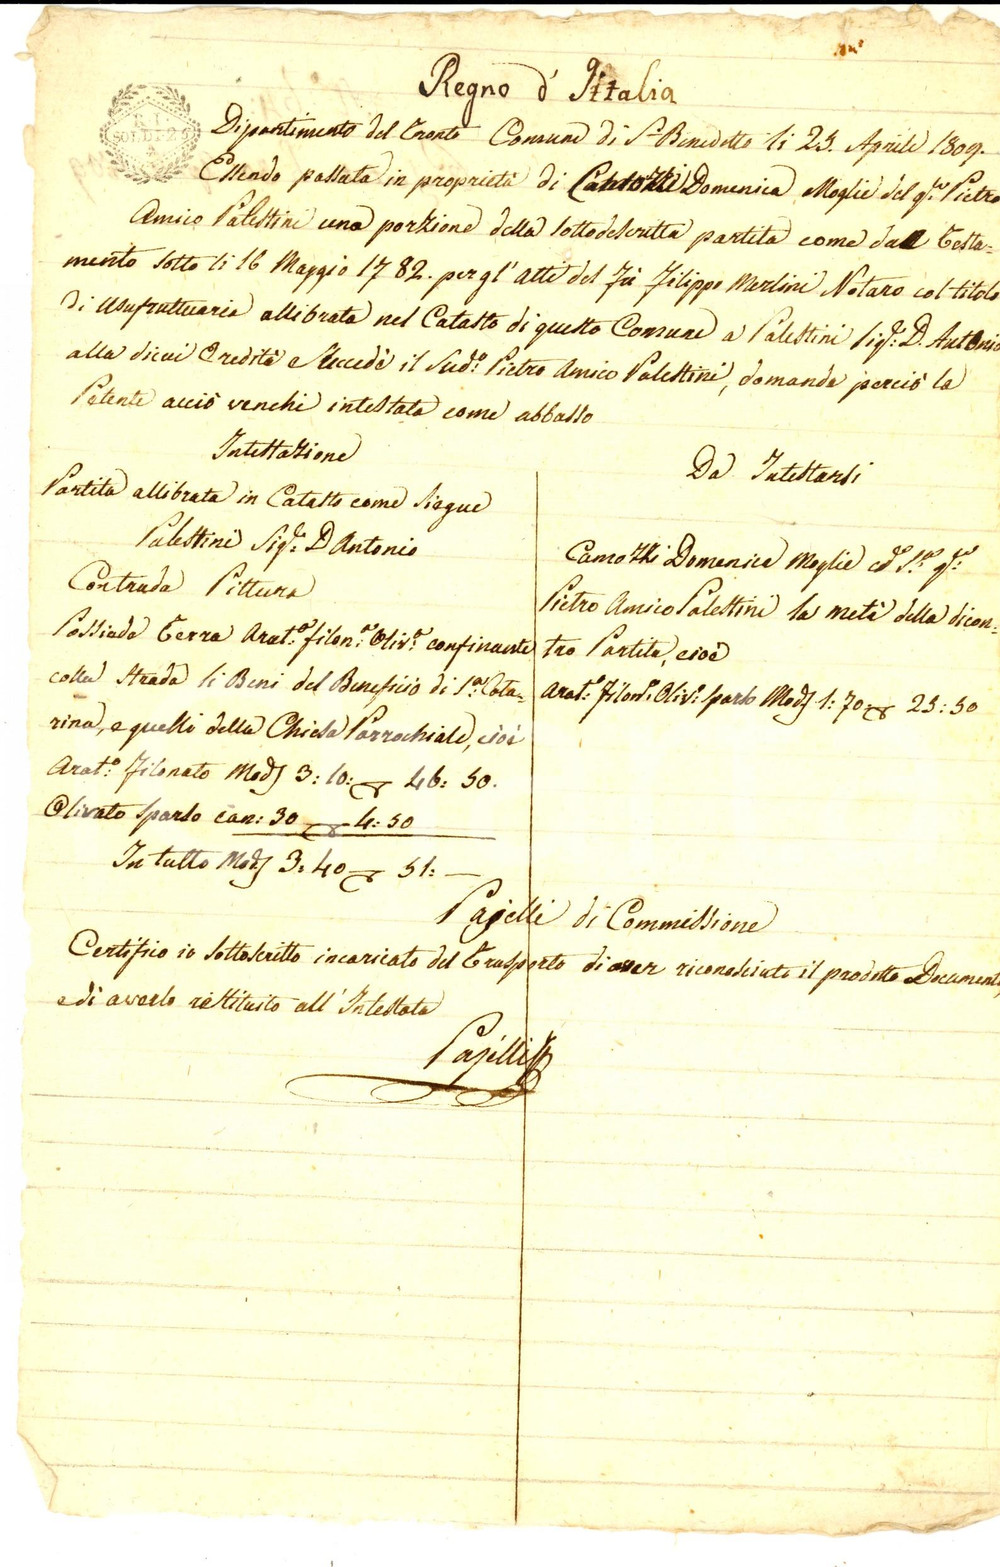 Regno d' Ittalia
R. I.
SOLDI 25
Dipartimento del Tronto Comune di S. Benedetto li 23. Aprile 1809.
Essendo passata in proprietà di Camozzi Domenica Moglie del qm Pietro
Amico Palestini una porzione della sottodescritta partita come dal Testa=
mento sotto li 16 Maggio 1782. per gl' atti del fù Filippo Merlini Notaro col titolo
di usufruttuaria allibrata nel Catasto di questo Comune a Palestini Sigr. D. Antonio
alla dicui Eredità succedè il Sudo. Pietro Amico Palestini, domanda perciò la
Petente acciò venchi intestata come abbasso
Intestazione
Da Intestarsi
Partita allibrata in Catasto come siegue
Palestini Sigr. D Antonio
Contrada Pittura
Possiede Terra Arato. filono. Olivo. confinante
colla strada li Beni del Beneficio di Sa. Cata=
rina, e quelli della Chiesa Parrochiale, cioè
Arato. filonato Modj 3: 10: 46: 50.
Olivato sparso can: 30 4: 50
In tutto Modj 3: 40 51: —
Camozzi Domenica Moglie qm.
Pietro Amico Palestini la metà della dicon=
tro Partita, cioè
Arato. filono. Olivo. sparso Modj 1: 70: 25: 50
Pajelli di Commissione
Certifico io sottoscritto incaricato del Trasporto di aver riconosciuto il prodotto Documento,
e di averlo rèstituito all' Intestata
Pajelli